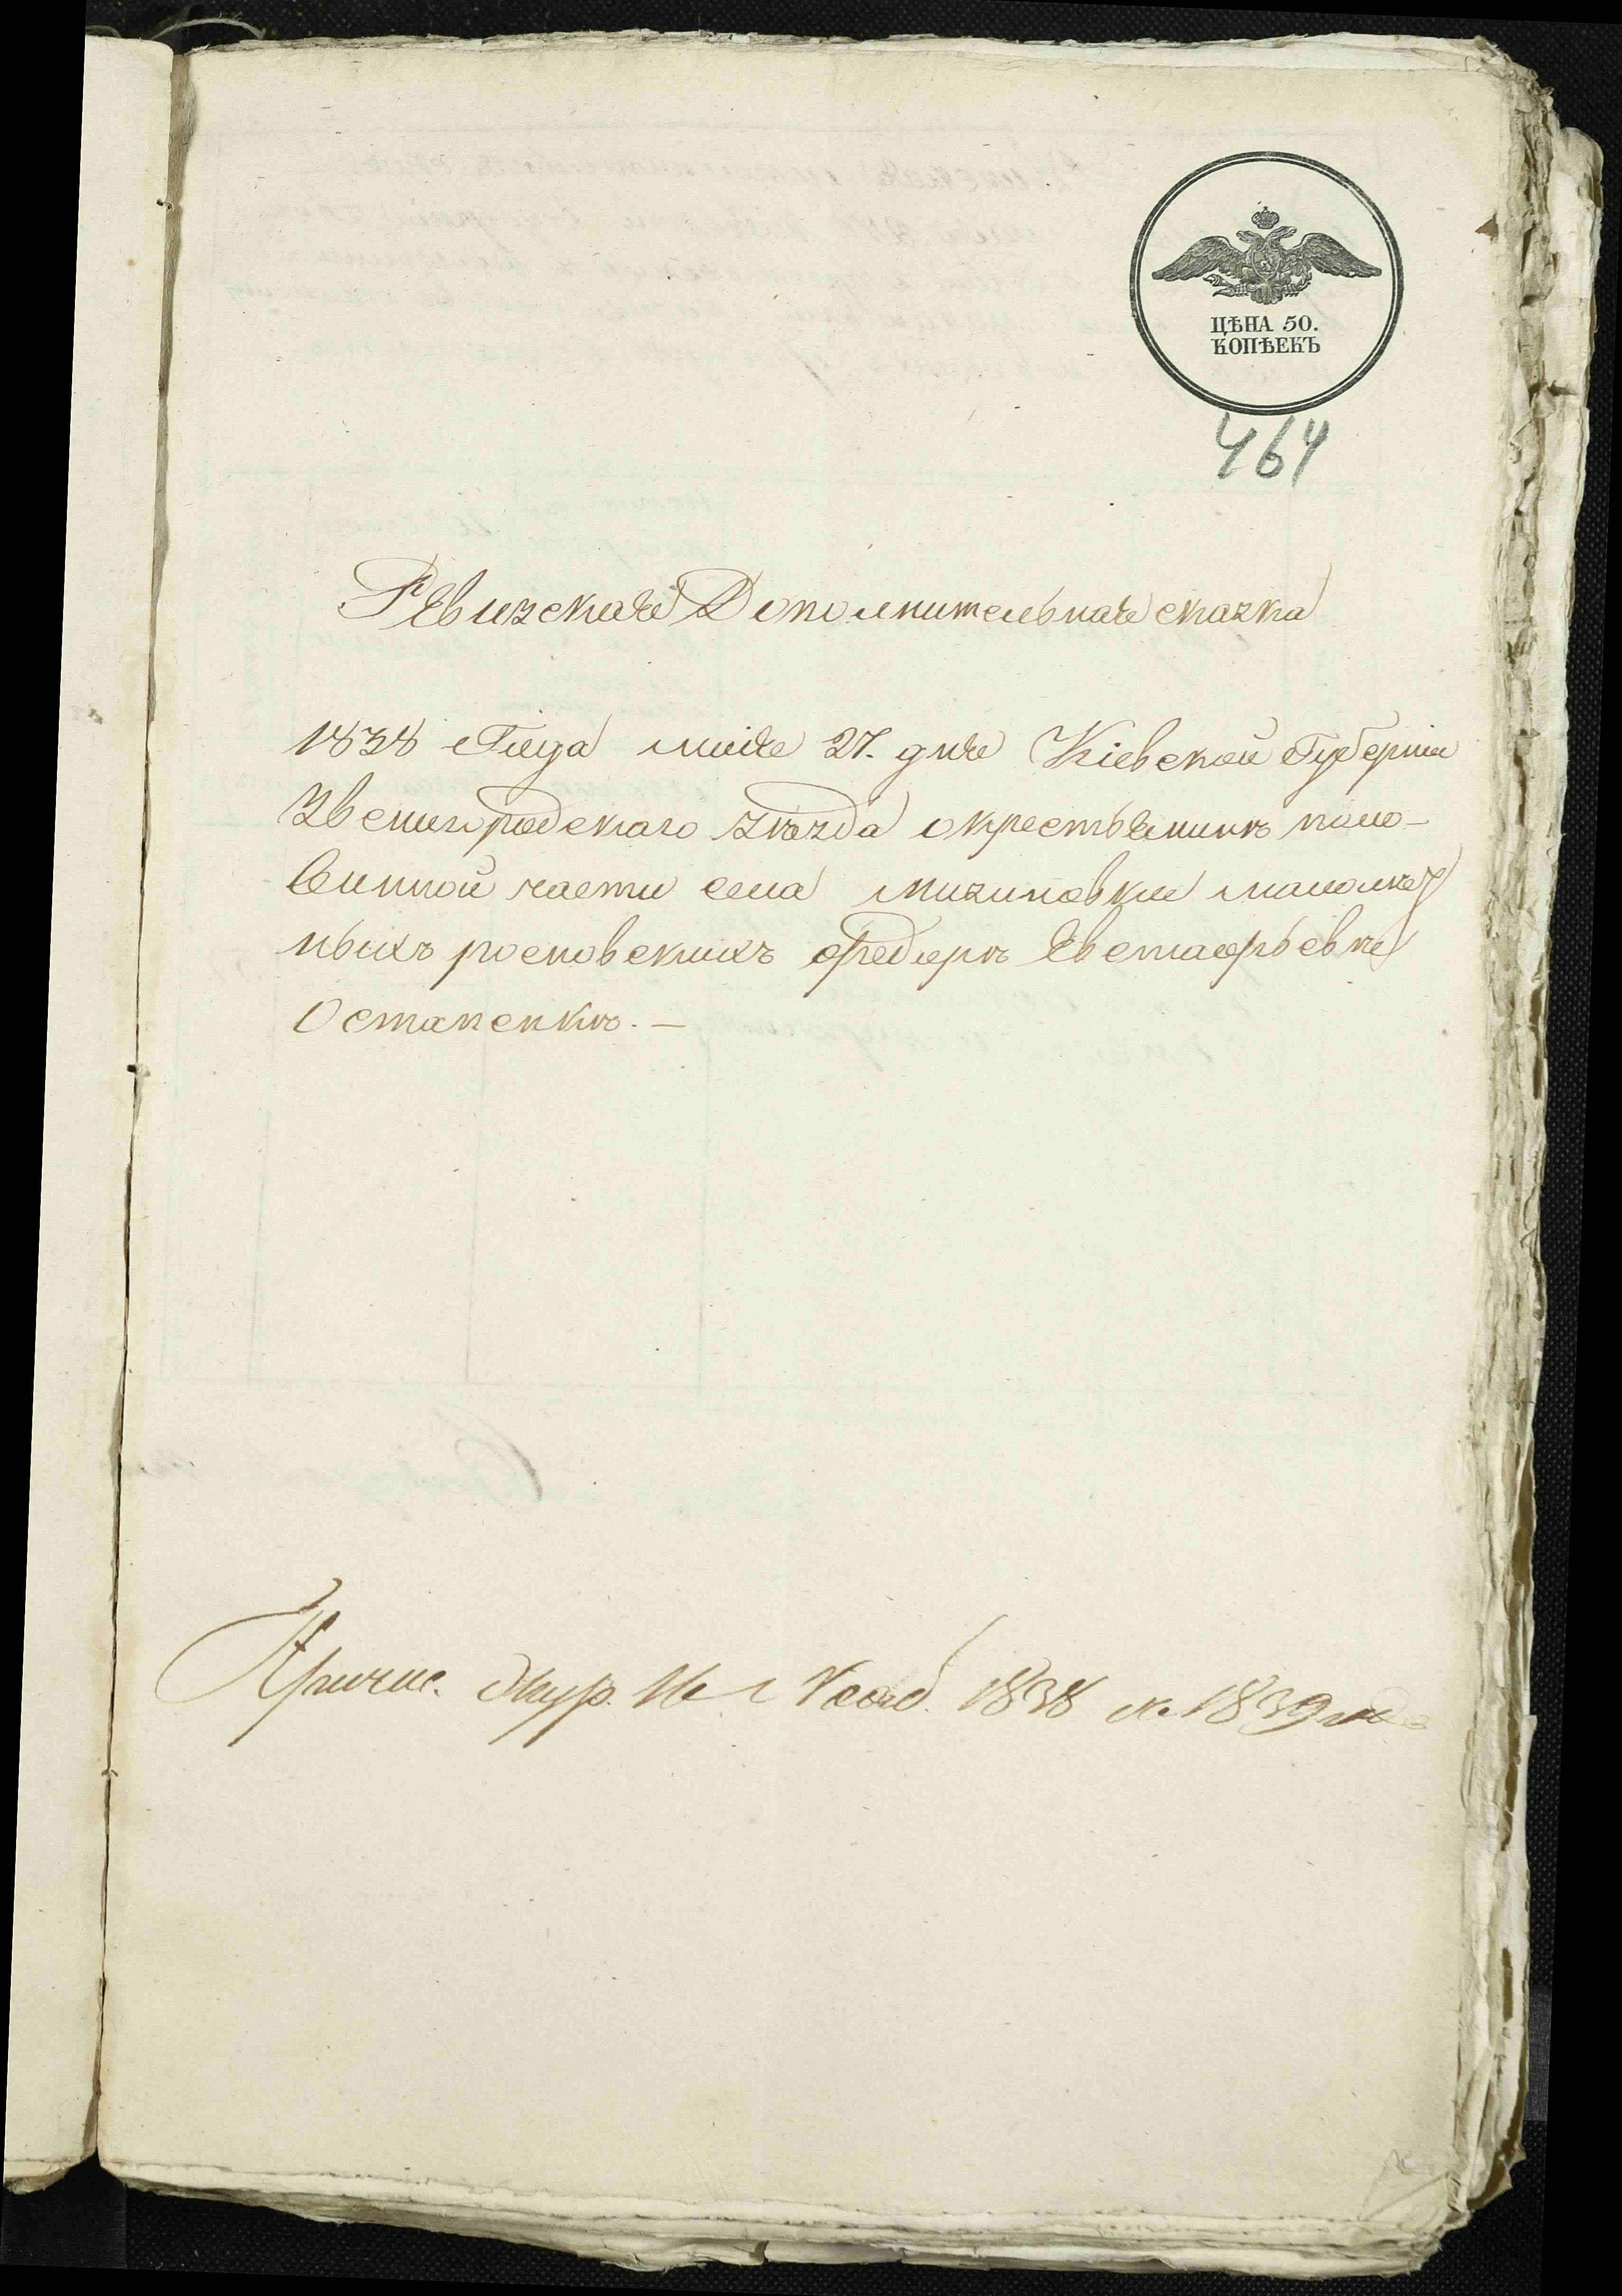 ЦѢНА 50.
КОПѢЕКЪ
464
Ревизская Дополнительная сказка
1838 Года маія 27. дня Кіевской Губерніи
Звенигородскаго уѣзда о крестьянинѣ поло-
винной части села
ныхъ росповскихъ Федорѣ Евстафьевѣ
Остапенкѣ. —
Причис. Жур. 16 1838 1839